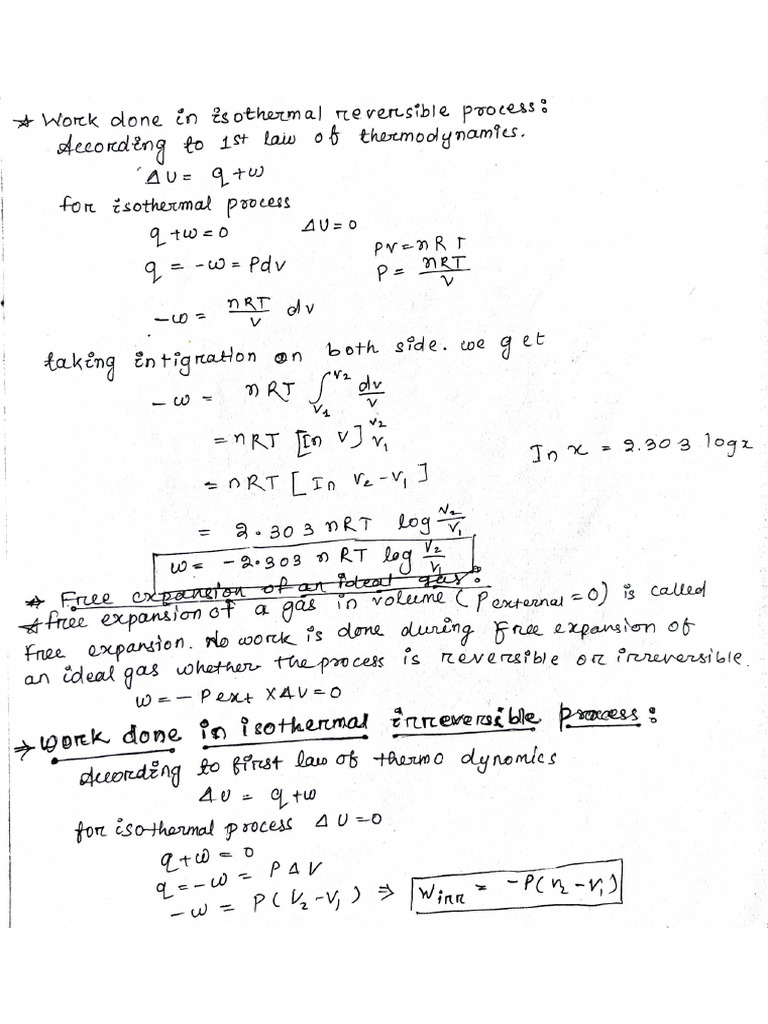 * Work done in isothermal reversible process:
According to 1st law of thermodynamics.
ΔU = q+w
for isothermal process
q+w=0    ΔU=0
PV=nRT
q = -w = Pdv    P = nRT/V
-w = nRT/V dv
taking intigration on both side. we get
-w = nRT ∫V1^V2 dv/v
= nRT [In V]V1^V2
= nRT [In V2-V1]    In x = 2.303 logx
= 2.303 nRT log V2/V1
w = -2.303 nRT log V2/V1
* Free expansion of an ideal gas:
* free expansion of a gas in volume (Pexternal=0) is called
free expansion. No work is done during free expansion of
an ideal gas whether the process is reversible or irreversible.
w = - Pext x ΔV = 0
→ Work done in isothermal irreversible process:
According to first law of thermo dynomics
ΔU = q+w
for isothermal process ΔU=0
q+w = 0
q=-w = PΔV
-w = P(V2-V1) ⇒ Wirr = -P(V2-V1)